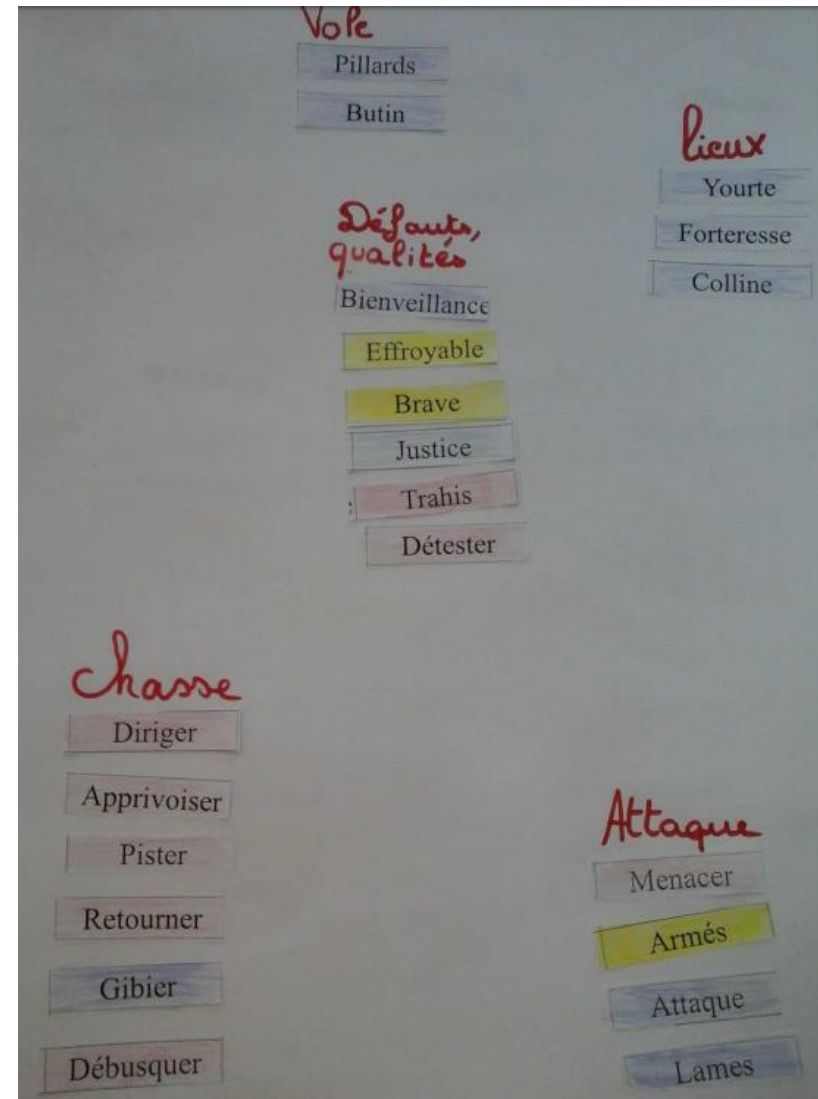 Vole
Pillards
Butin
lieux
Yourte
Forteresse
Colline
Défauts,
qualités
Bienveillance
Effroyable
Brave
Justice
Trahis
Détester
Chasse
Diriger
Apprivoiser
Pister
Retourner
Gibier
Débusquer
Attaque
Menacer
Armés
Attaque
Lames